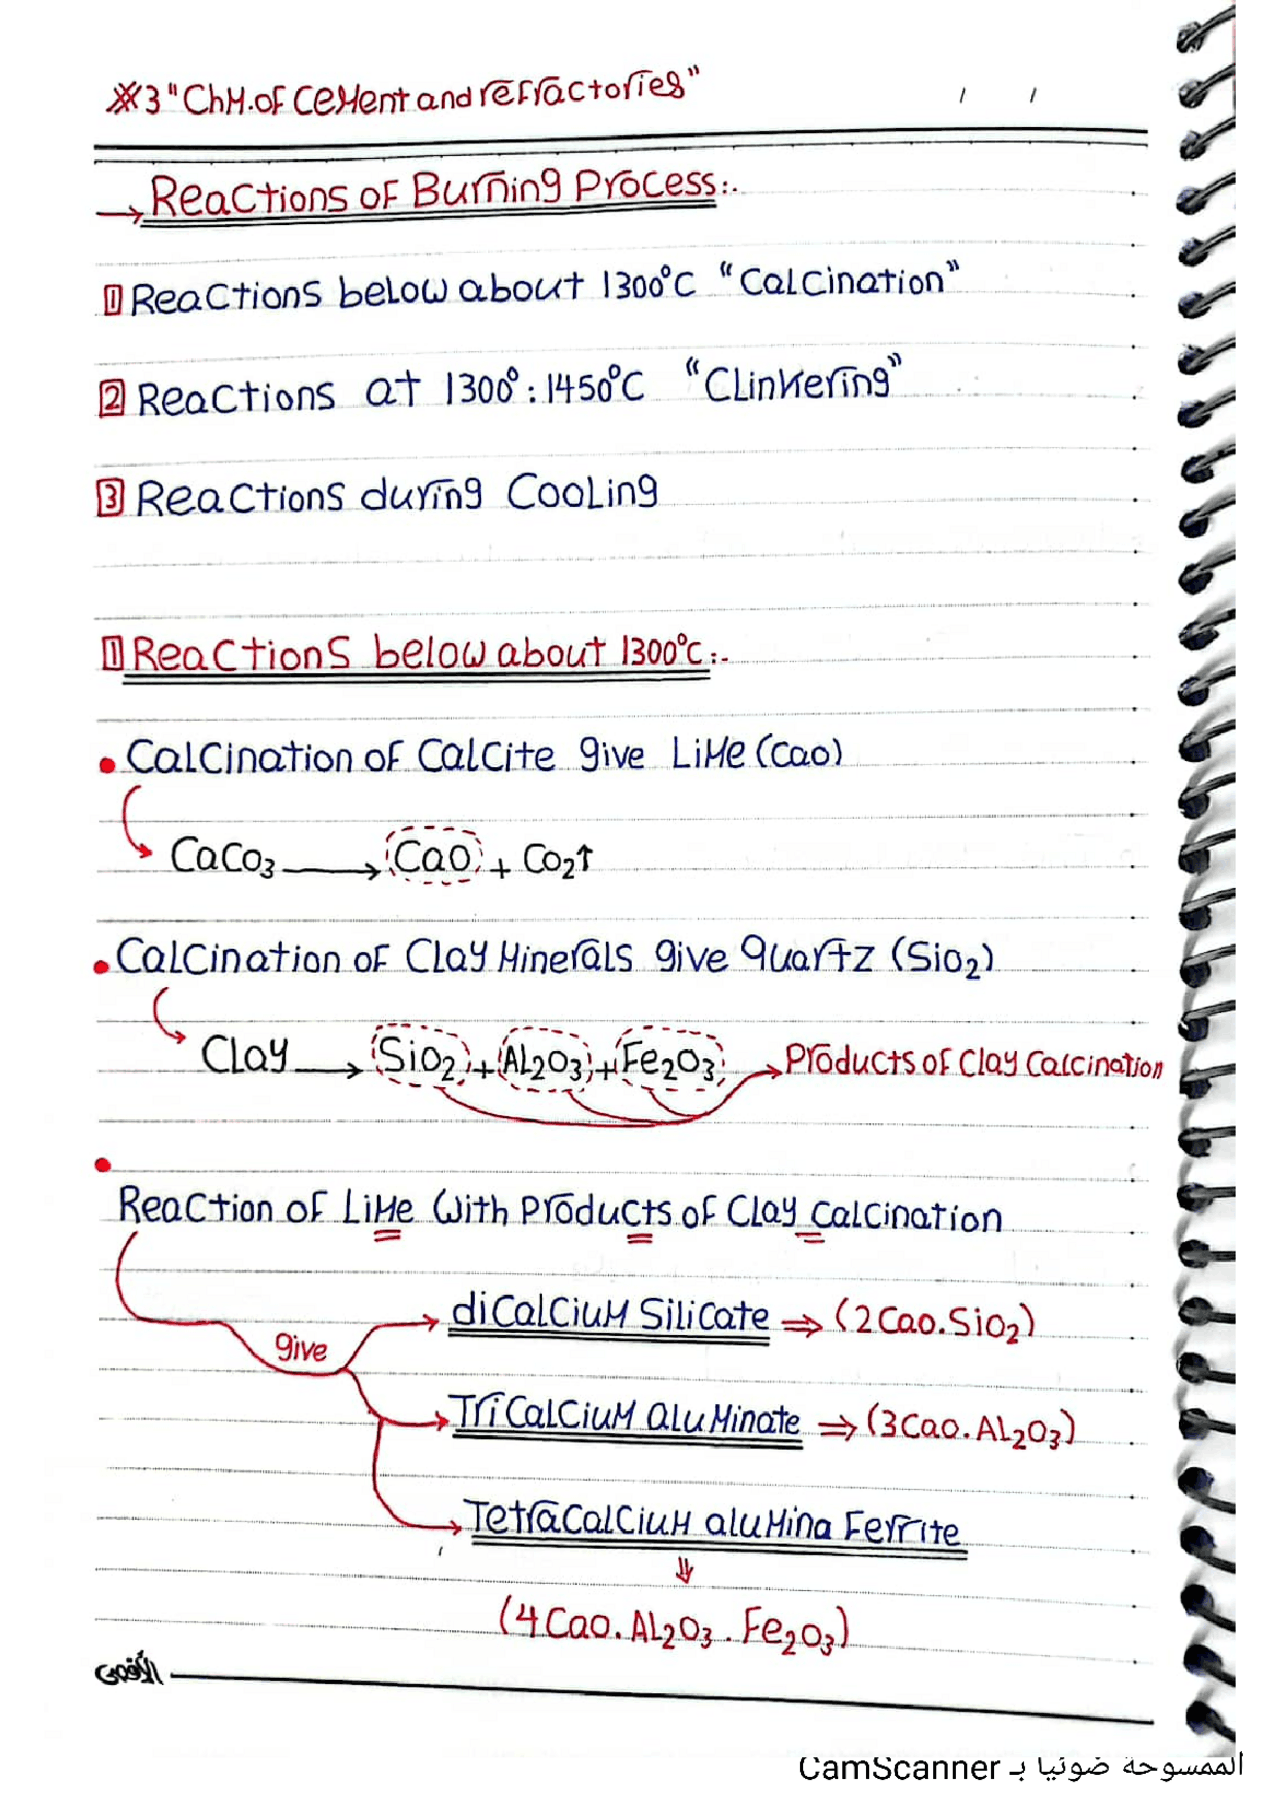 ※3 "ChM. of Cement and refractories" / /
→ Reactions of Burning Process:.
1 Reactions below about 1300°C "Calcination"
2 Reactions at 1300° : 1450°C "Clinkering"
3 Reactions during Cooling
1 Reactions below about 1300°C :-
• Calcination of Calcite give Lime (Cao)
CaCO₃ → CaO + CO₂↑
• Calcination of Clay Minerals give quartz (SiO₂)
Clay → SiO₂ + Al₂O₃ + Fe₂O₃ → Products of Clay Calcination
•
Reaction of Lime with Products of Clay Calcination
give
diCalcium Silicate ⇒ (2CaO.SiO₂)
TriCalcium aluminate ⇒ (3CaO.Al₂O₃)
TetraCalcium alumina Ferrite
⇓
(4CaO.Al₂O₃.Fe₂O₃)
الأفق
الممسوحة ضوئيا بـ CamScanner